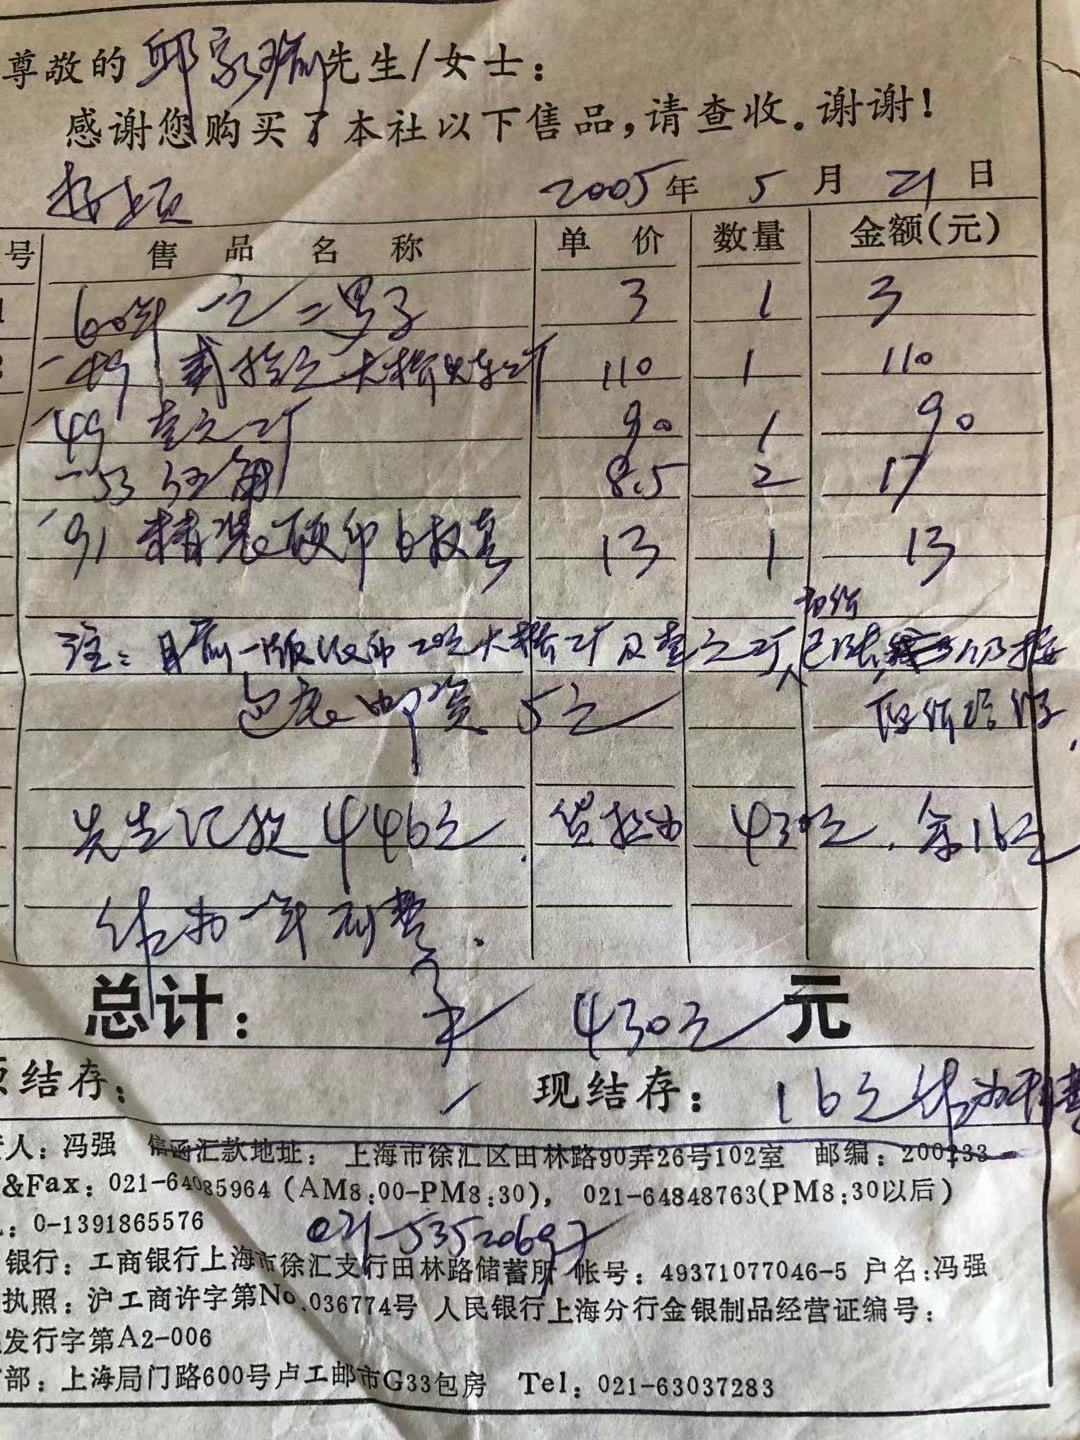 尊敬的 邱家瑜 先生/女士：
感谢您购买了本社以下售品，请查收。谢谢！
接上页 2005年 5 月 21 日
号 售 品 名 称 单 价 数量 金额(元)
60年 一元 二 3 1 3
49 贰拾元 大桥火车 110 1 110
49 壹元 90 1 90
53 伍角 8.5 2 17
91 精装硬印 13 1 13
注：目前一版 20元大桥 及壹元 已涨 仍按
包裹邮资 5元 低价给您.
先生汇款 446元. 货款为 430元. 余16元
作为一年刊费.
总计： 430元 元
结存： 现结存： 16元作为刊费
人：冯强 信函汇款地址：上海市徐汇区田林路90弄26号102室 邮编：200233
&Fax：021-64085964 (AM8:00-PM8:30)， 021-64848763(PM8:30以后)
：0-1391865576
021-53520697
银行：工商银行上海市徐汇支行田林路储蓄所 帐号：49371077046-5 户名：冯强
执照：沪工商许字第No.036774号 人民银行上海分行金银制品经营证编号：
发行字第A2-006
部：上海局门路600号卢工邮市G33包房 Tel：021-63037283